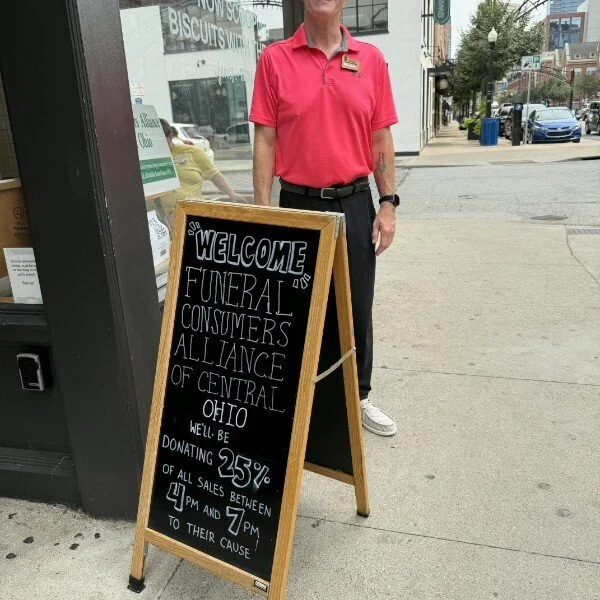 NOW SC
BISCUITS WIT
s Alliance
Ohio
WELCOME
FUNERAL
CONSUMERS
ALLIANCE
OF CENTRAL
OHIO
WE'LL BE
DONATING 25%
OF ALL SALES BETWEEN
4PM AND 7PM
TO THEIR CAUSE!